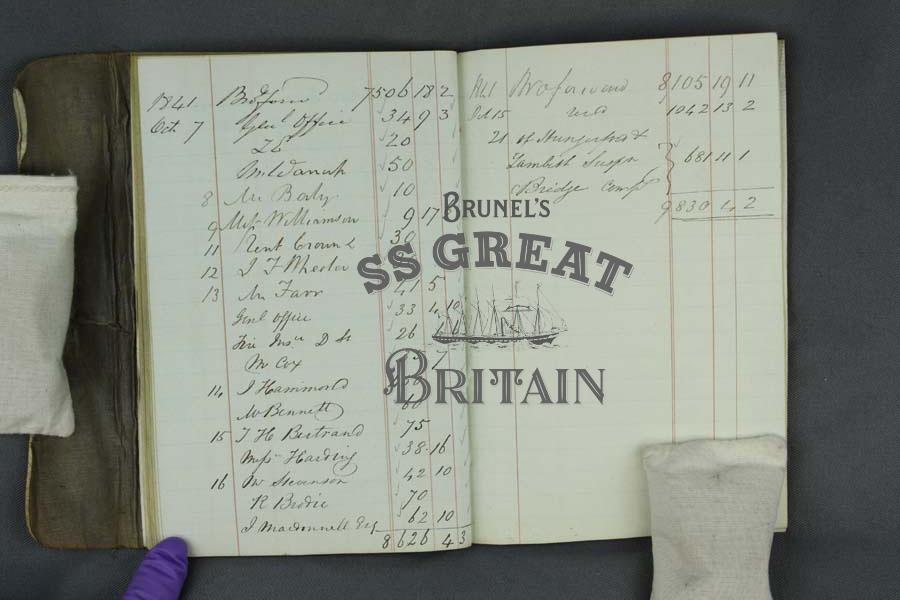 1841 Bro forwd 7506 18 2
Oct. 7 Genl Office 349 3
20
50
8 Mr 10
9 Messrs Williamson 9 17
11 Rent Crown 30
12 J F Wheeler
13 Mr Farr 41 5
Genl office 33 4 10
Fire Insce 26
Mr Cox 7
14 J Hammond
Mr Bennett 60
15 J H Bertrand 75
Messrs Harding 38 16
16 Mr Stevenson 42 10
R Brodie 70
J Macdonnell Esq 62 10
8626 4 3
1841 Bro forward 8105 19 11
Oct 15 1042 13 2
21 of Hungerford &
Lambeth Suspn 681 11 1
Bridge Compy
9830 4 2
BRUNEL'S
SS GREAT
BRITAIN